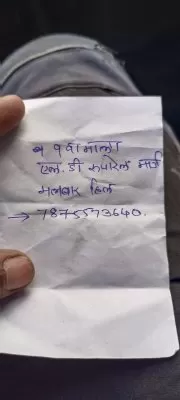 १ वा माळा
एल. डी रुपारेल मार्ग
मलबार हिल
→ 7875573640.